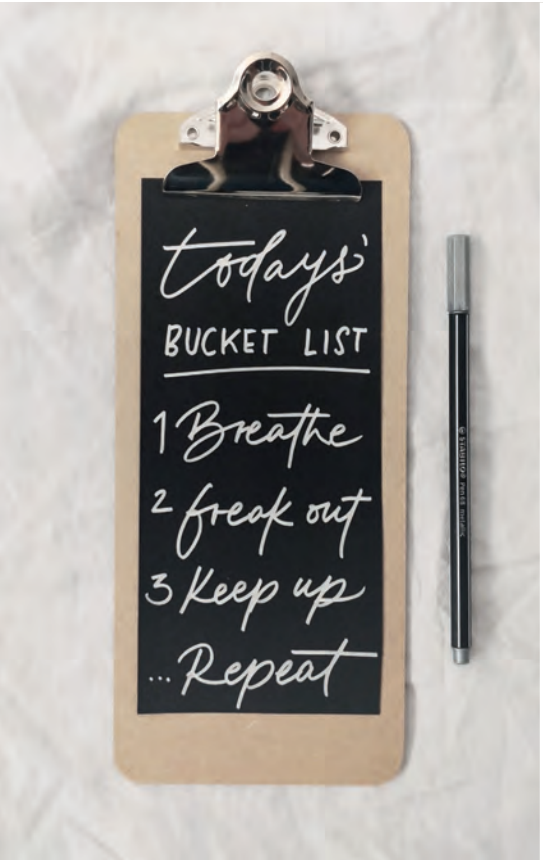 todays'
BUCKET LIST
1 Breathe
2 freak out
3 Keep up
... Repeat
STABILO Pen 68 metallic